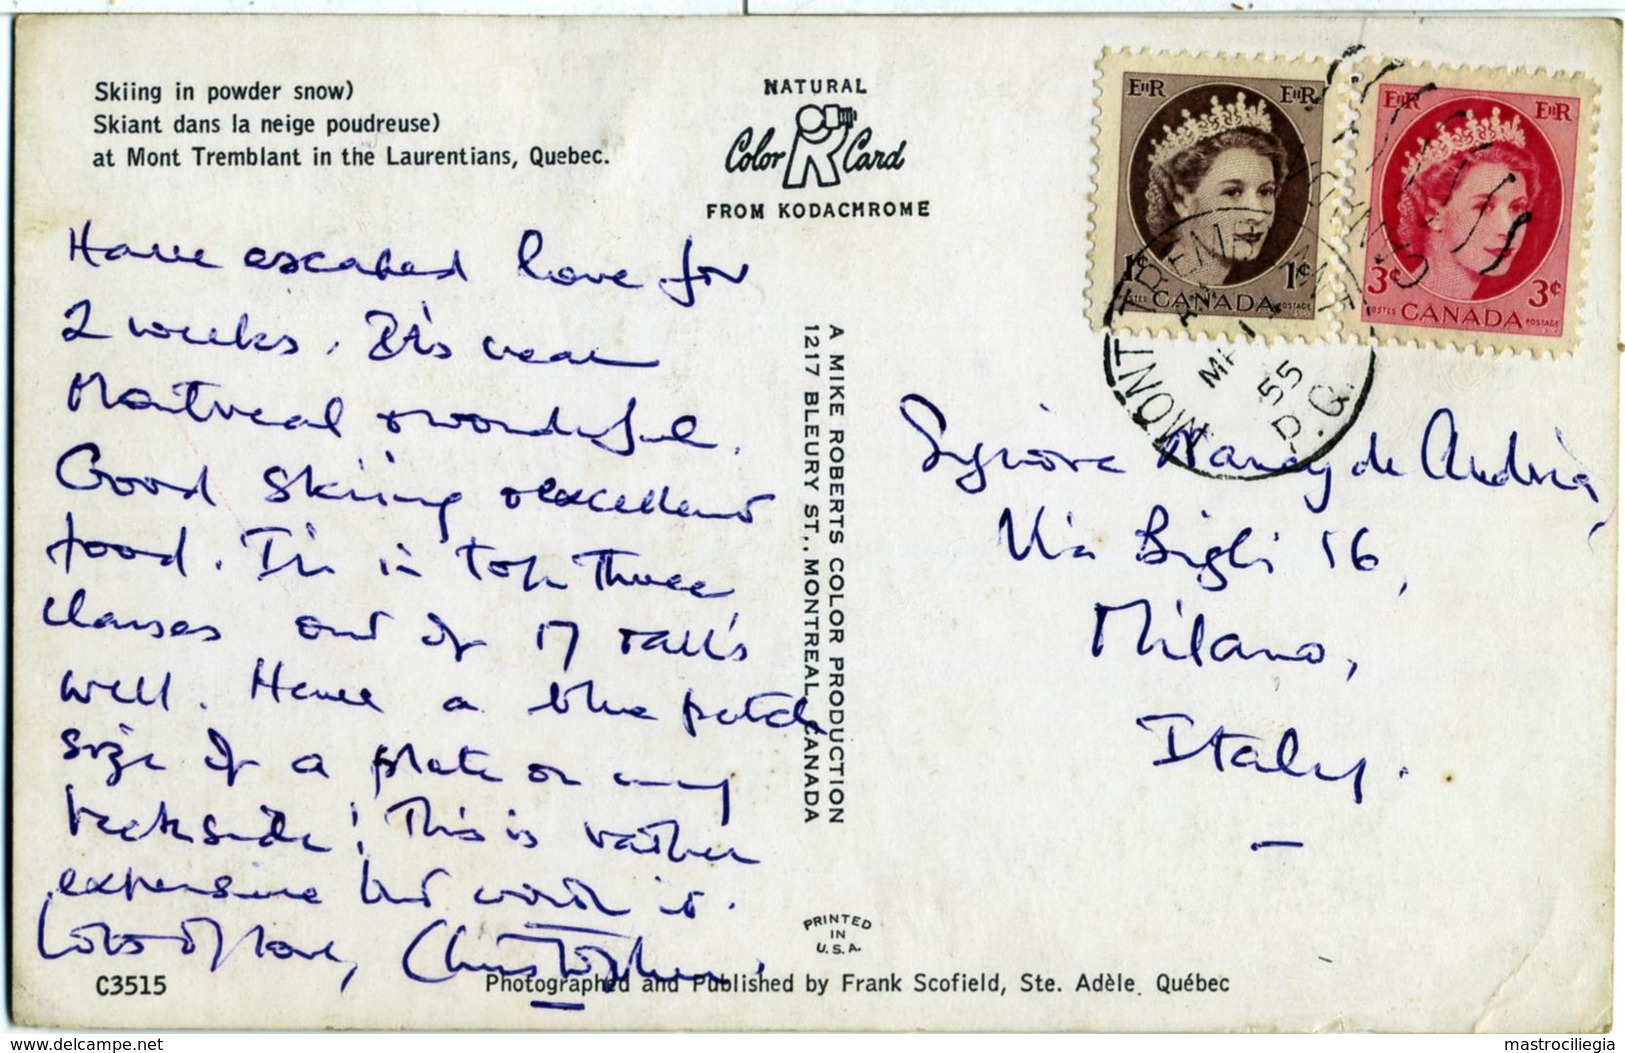 Skiing in powder snow)
Skiant dans la neige poudreuse)
at Mont Tremblant in the Laurentians, Quebec.
NATURAL
Color Card
FROM KODACHROME
Have escaped here for
2 weeks. It's near
Montreal & wonderful.
Good skiing & excellent
food. I'm in top three
classes out of 17 so all's
well. Have a blue patch
size of a plate on my
backside! This is rather
expensive but worth it.
Lots of love, Christopher.
C3515
A MIKE ROBERTS COLOR PRODUCTION
1217 BLEURY ST., MONTREAL, CANADA
PRINTED
IN
U.S.A.
Photographed and Published by Frank Scofield, Ste. Adèle, Québec
EIIR EIIR
1¢ 1¢
POSTES CANADA POSTAGE
EIIR EIIR
3¢ 3¢
POSTES CANADA POSTAGE
MONT TREMBLANT
55
P.Q.
Signora Nancy de Andria,
Via Bigli 16,
Milano,
Italy.
www.delcampe.net
mastrociliegia